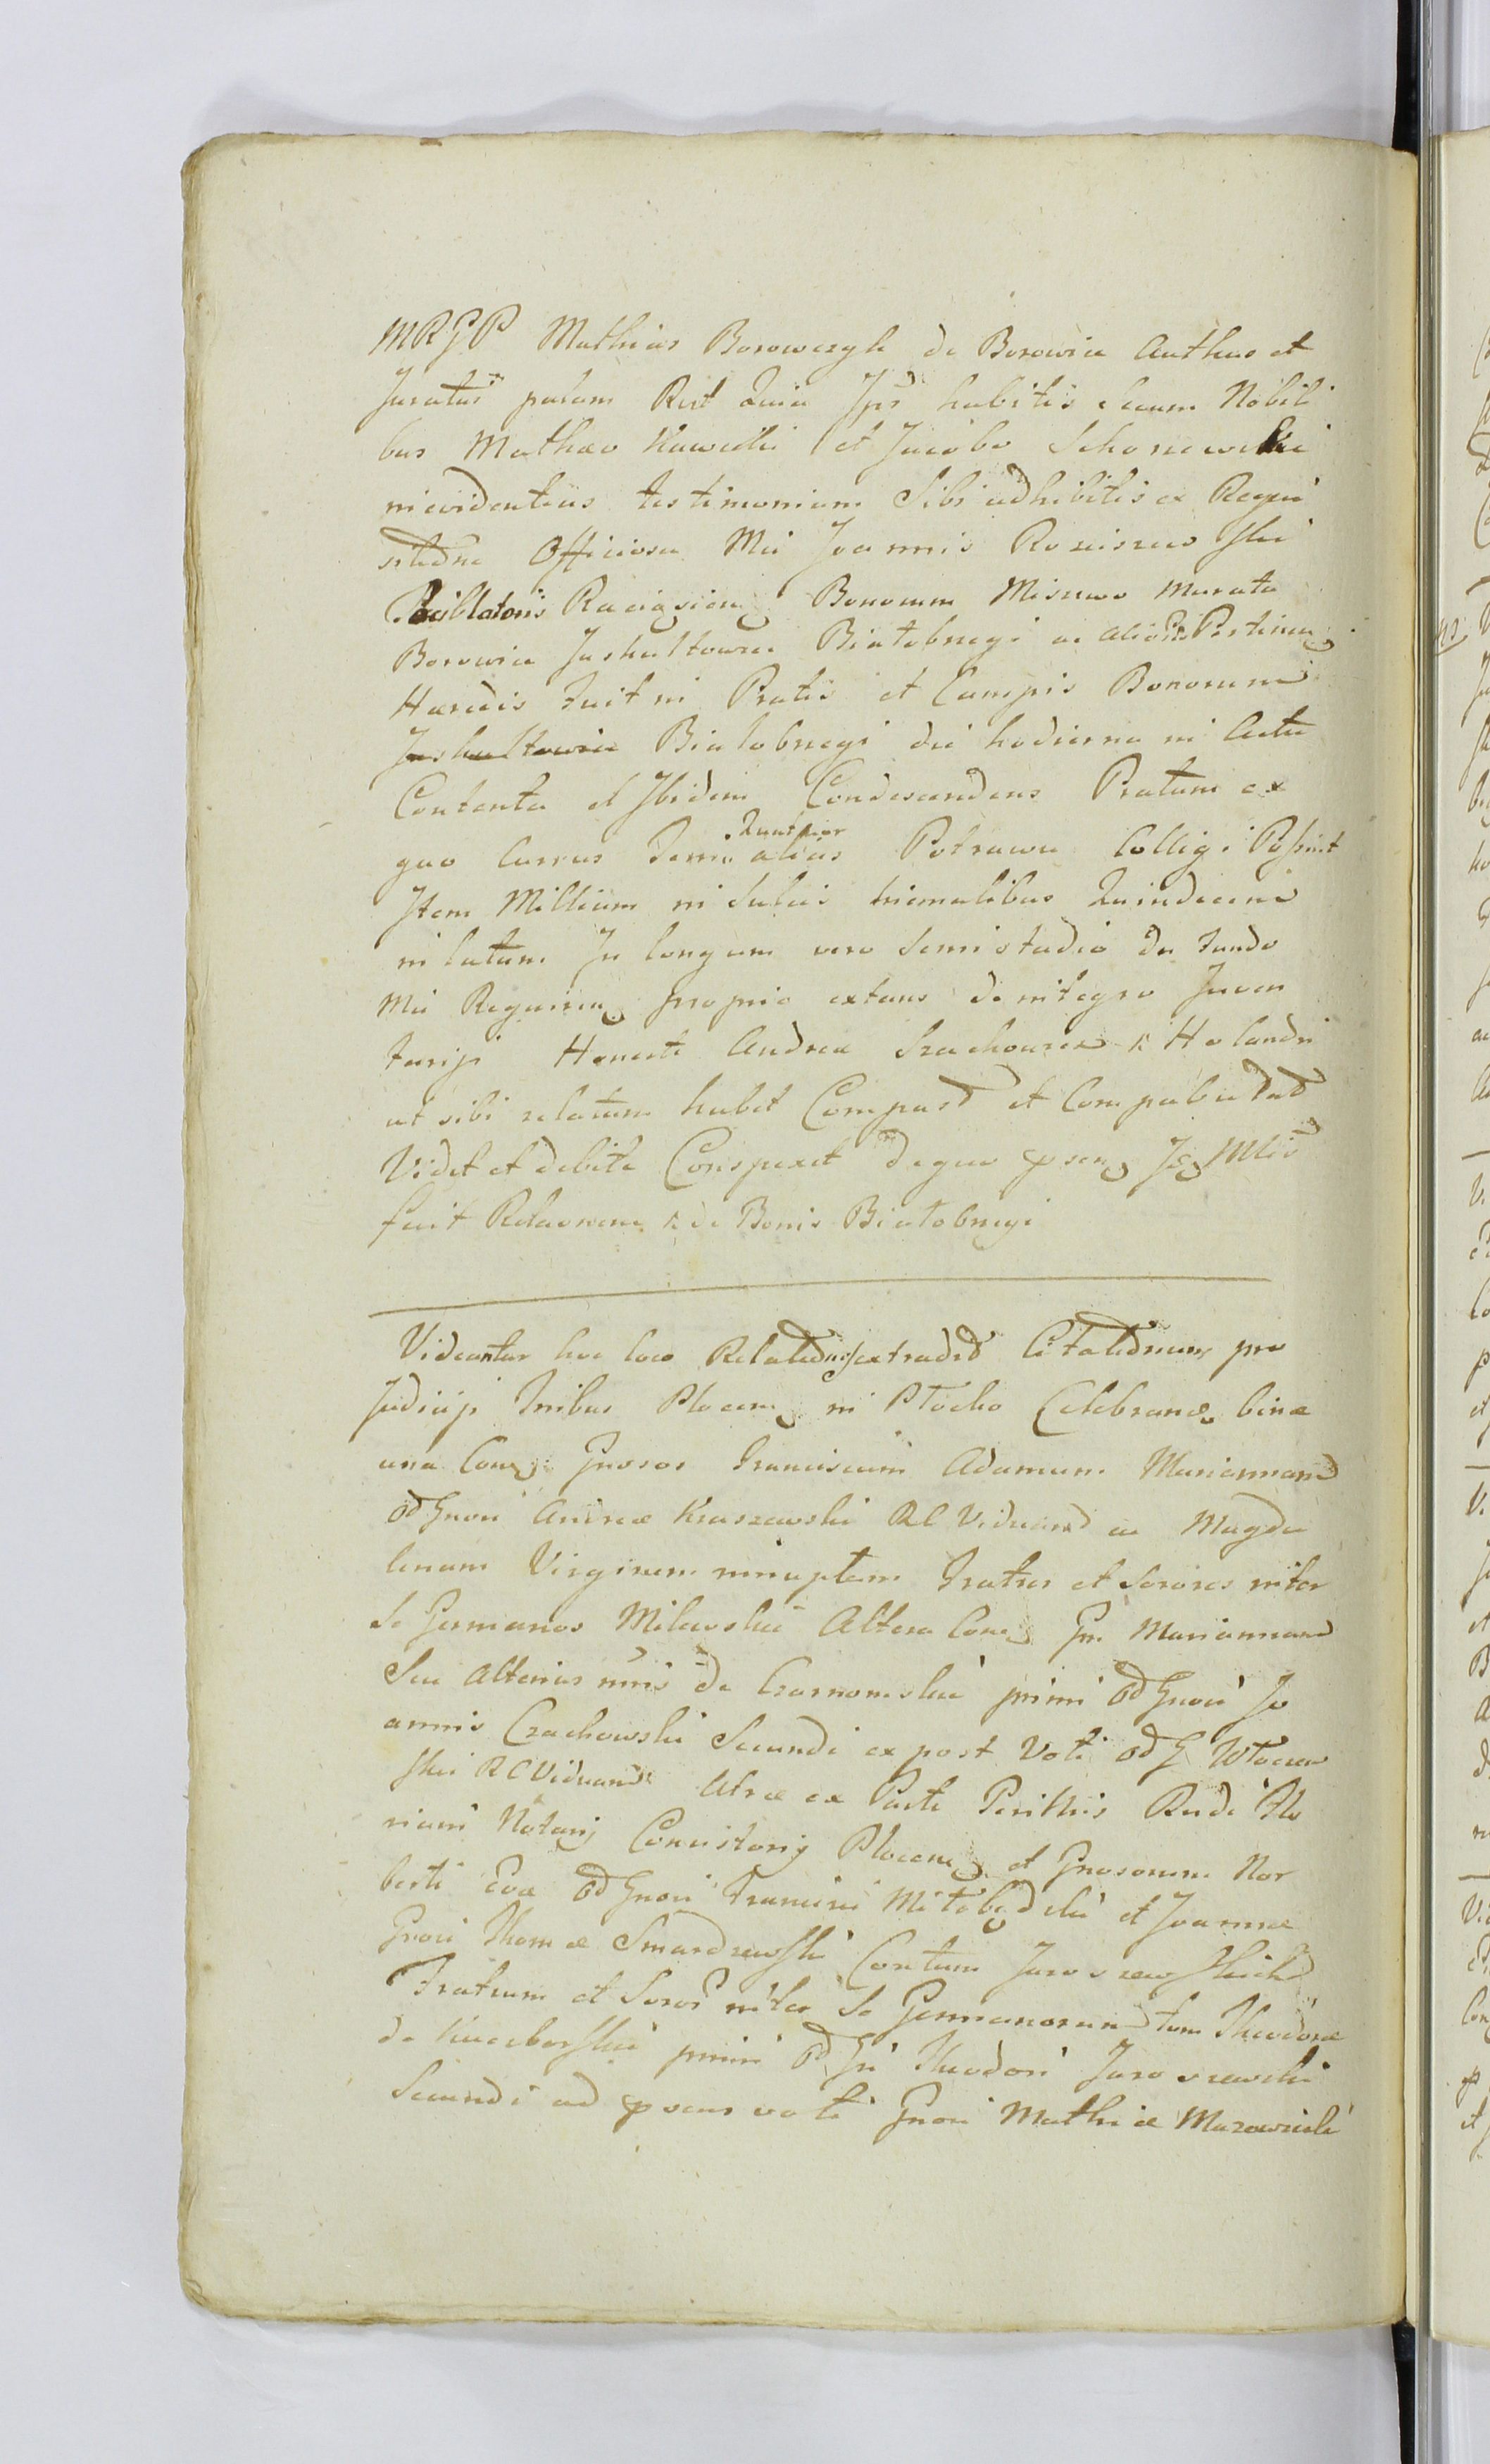 MRGP Mathias Borowczyk de Borowice Authus et
Juratus palam Rect Quia Ips habitis secum Nobili
bus Mathæo Kawecki et Jacobo Schonewski
in evidentius testimonium Sibi adhibitis ex Requi
sitione Officiosa Mci Joannis Rosciszewski
Raciązien Bonorum Miszewo Murata
Borowice Juskultowice Białobrzegi ac alior Pertinen
Hærdis fuit in Pratis et Campis Bonorum
Juskultowice Białobrzegi die hodierna in Actu
Contenta et Ibidem Condescendens Pratum ex
quo Currus Quatuor alias Potrawu Colligi Possint
Item Millium in Sulcis hiemalibus Quindecim
in latum In longum vero Semistadio de fundo
Mci Requiren proprio extans de integro Juven
Honesti Andreæ Szachowicz Holandri
ut sibi relatum habet Compast et Compabulat
Vidit et debite Conspexit de quo psen Jo Mlis
fecit Relaonem de Bonis Białobrzegi
Videantur hoc loco Relatednes extradit Citatednum pro
Judicijs Tribus Plocen in Płocko Celebran binæ
una Conz Gnosos Franciscum Adamum Mariannam
od Gnosi Andreæ Kraszewski RC Viduam ac Magda
lenam Virginem innuptam Fratres et Sorores inter
Se Germanos Milewskie Altera Conz Gn Mariannam
Seu Alterius nnis de Czarnomskie primi od Gnosi Jo
annis Czachowski Secundi ex post Voti od G Włoczew
ski RC Viduam Utræ ex Parte Perillis Rndi Flo
riani Notarij Consistorij Plocen et Gnosorum Nor
berti Evæ od Gnosi Francisci Mitobędzki et Joannæ
Gnosi Thomæ Smardzewski Contum Jaroszewskich
Fratrum et Soror inter Se Germanorum tum Theodoræ
de Kucborskie primi od Gn Theodori Jaroszewski
Secundi ad psens voti Gnosi Mathiæ Mazowiecki